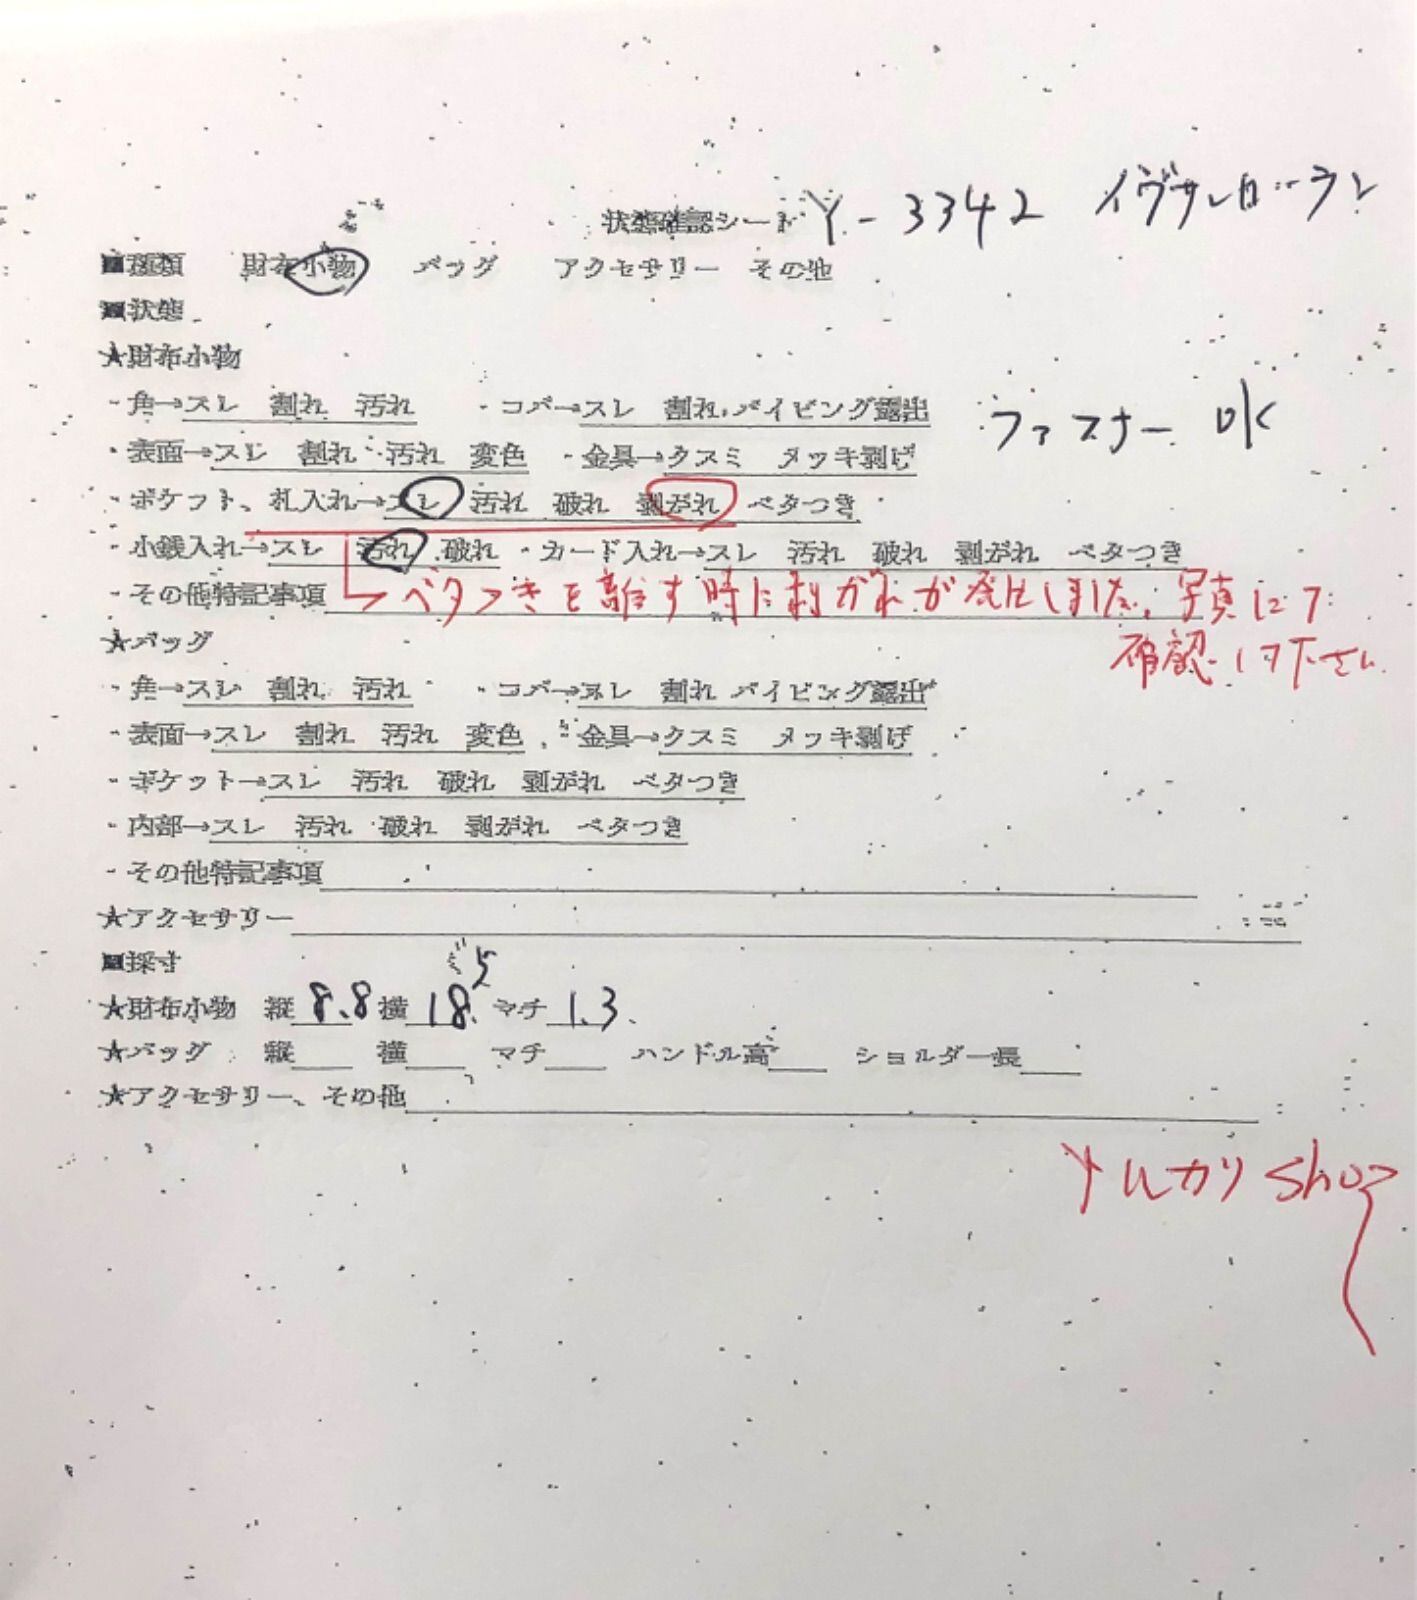 状態確認シート Y-3342 イヴサンローラン
■種類 財布小物 バッグ アクセサリー その他
■状態
★財布小物
・角→スレ 割れ 汚れ ・コバ→スレ 割れ パイピング露出 ファスナー OK
・表面→スレ 割れ 汚れ 変色 ・金具→クスミ メッキ剥げ
・ポケット、札入れ→スレ 汚れ 破れ 剥がれ ベタつき
・小銭入れ→スレ 汚れ 破れ ・カード入れ→スレ 汚れ 破れ 剥がれ ベタつき
・その他特記事項 ベタつきを離す時に剥がれが発生しました。写真にて
確認して下さい
★バッグ
・角→スレ 割れ 汚れ ・コバ→スレ 割れ パイピング露出
・表面→スレ 割れ 汚れ 変色 ・金具→クスミ メッキ剥げ
・ポケット→スレ 汚れ 破れ 剥がれ ベタつき
・内部→スレ 汚れ 破れ 剥がれ ベタつき
・その他特記事項
★アクセサリー
■採寸
★財布小物 縦 8.8 横 18.5 マチ 1.3
★バッグ 縦 横 マチ ハンドル高 ショルダー長
★アクセサリー、その他
メルカリ shop